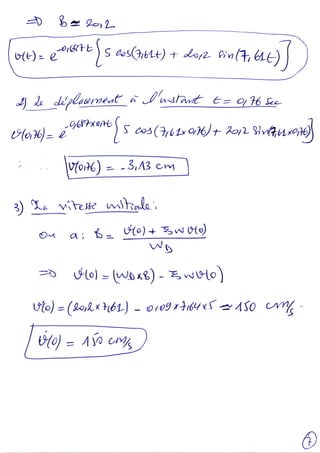 ⇒ B ≃ 20,2
v(t) = e^{-0,687t} { 5 cos(7,61t) + 20,2 sin(7,61t) }
2) Le déplacement à l'instant t = 0,76 sec
v(0,76) = e^{-0,687x0,76} { 5 cos(7,61x0,76) + 20,2 sin(7,61x0,76) }
v(0,76) = -3,13 cm
3) La vitesse initiale:
on a: B = (v̇(0) + ξ w v(0)) / W_D
⇒ v̇(0) = (W_D x B) - ξ w v(0)
v̇(0) = (20,2 x 7,61) - 0,09 x 7,64 x 5 ≃ 150 cm/s.
v̇(0) = 150 cm/s
7